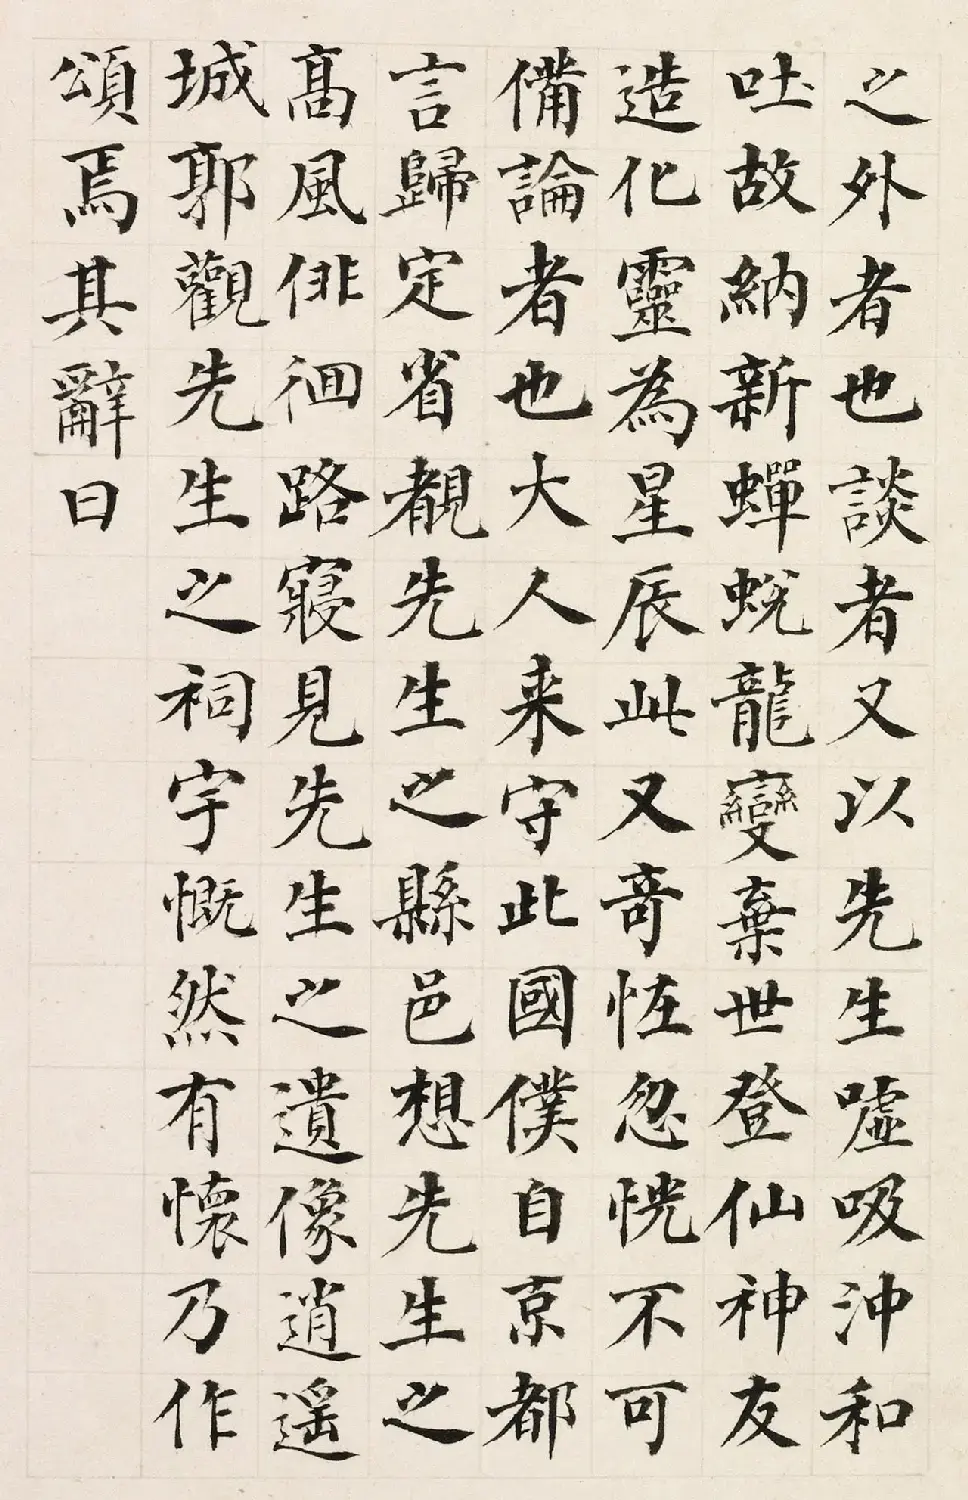 之外者也談者又以先生噓吸沖和
吐故納新蟬蛻龍變棄世登仙神友
造化靈為星辰此又奇恠忽恍不可
備論者也大人来守此國僕自京都
言歸定省覩先生之縣邑想先生之
髙風俳徊路寝見先生之遺像逍遥
城郭觀先生之祠宇慨然有懐乃作
頌焉其辭曰